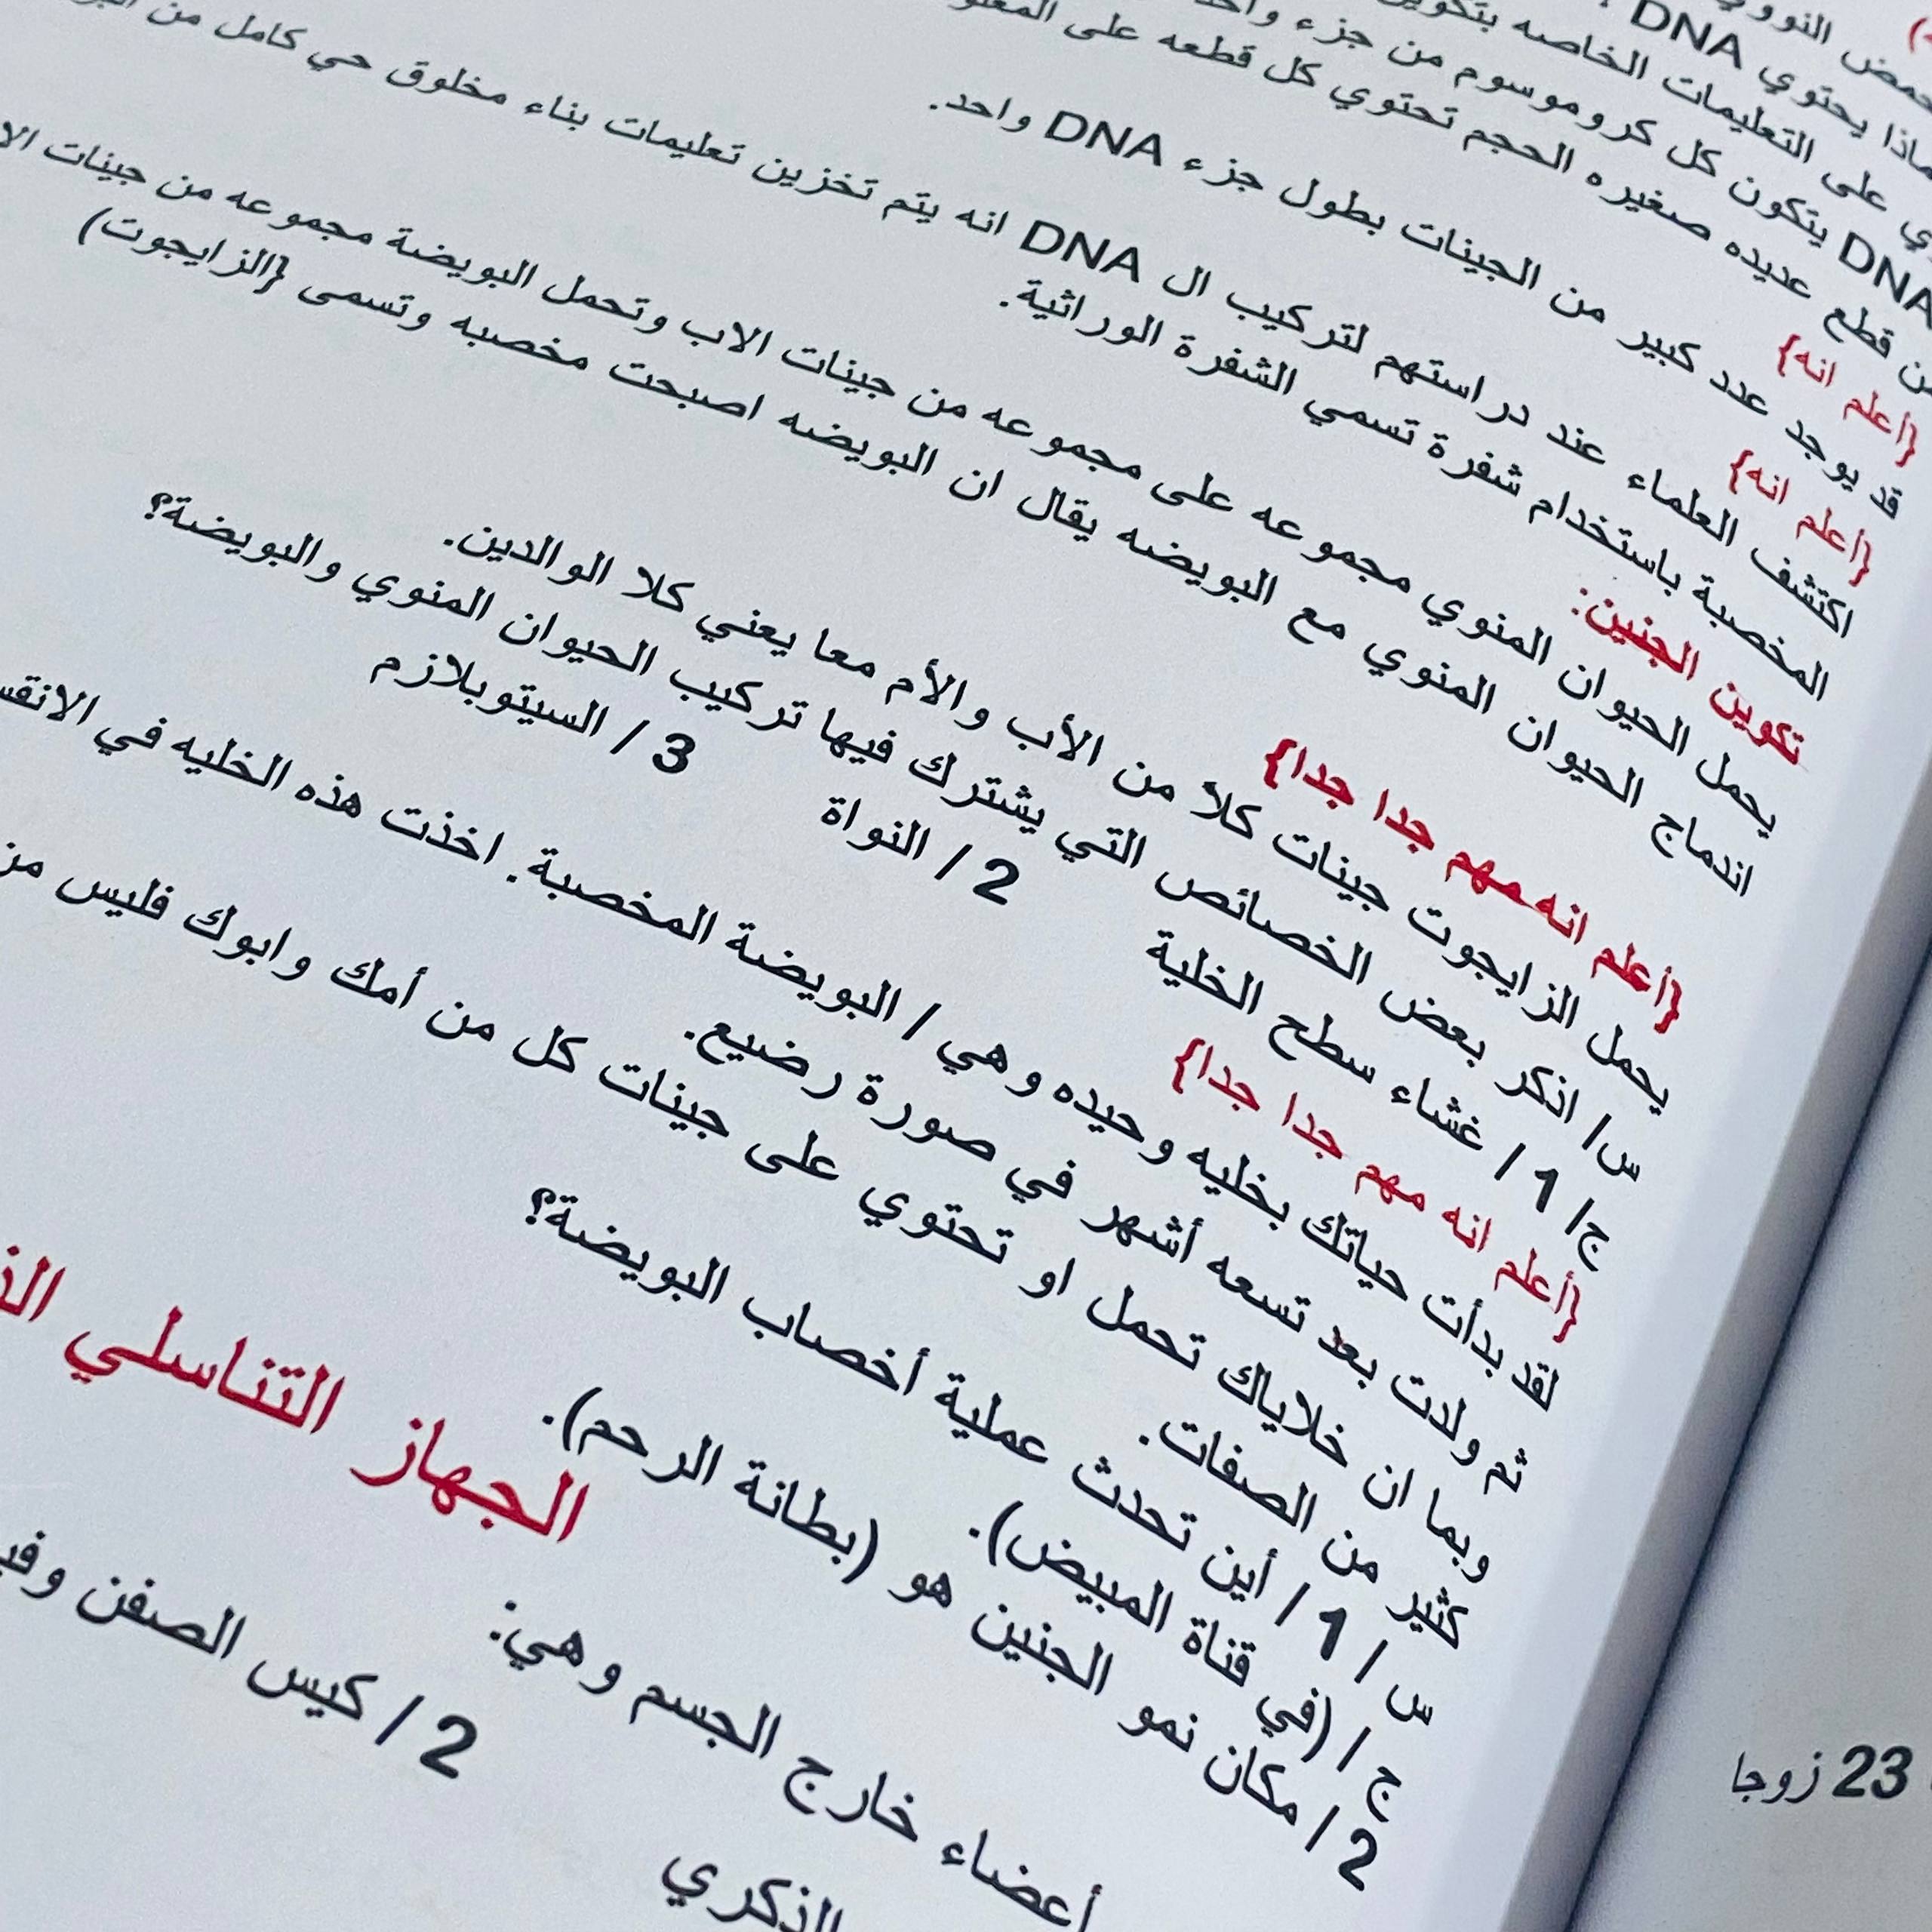 يحتوي DNA
على التعليمات الخاصه
DNA يتكون كل كروموسوم من جزء
قطع عديده صغيره الحجم تحتوي كل قطعه على
{أعلم انه}
قد يوجد عدد كبير من الجينات بطول جزء DNA واحد.
{أعلم انه}
اكتشف العلماء عند دراستهم لتركيب ال DNA انه يتم تخزين تعليمات بناء مخلوق حي كامل من
المخصبة باستخدام شفرة تسمي الشفرة الوراثية.
تكوين الجنين:
يحمل الحيوان المنوي مجموعه على مجموعه من جينات الاب وتحمل البويضة مجموعه من جينات
اندماج الحيوان المنوي مع البويضه يقال ان البويضه اصبحت مخصبه وتسمى {الزايجوت)
{أعلم انه مهم جدا جدا}
يحمل الزايجوت جينات كلاً من الأب والأم معا يعني كلا الوالدين.
س/ اذكر بعض الخصائص التي يشترك فيها تركيب الحيوان المنوي والبويضة؟
ج/ 1 / غشاء سطح الخلية 2 / النواة 3 / السيتوبلازم
{أعلم انه مهم جدا جدا}
لقد بدأت حياتك بخليه وحيده وهي / البويضة المخصبة. اخذت هذه الخليه في
ثم ولدت بعد تسعه أشهر في صورة رضيع.
وبما ان خلاياك تحمل او تحتوي على جينات كل من أمك وابوك فليس
كثير من الصفات.
س / 1 / أين تحدث عملية أخصاب البويضة؟
ج / (في قناة المبيض).
2 / مكان نمو الجنين هو (بطانة الرحم).
الجهاز التناسلي
أعضاء خارج الجسم وهي:
2 / كيس الصفن
الذكري
23 زوجا